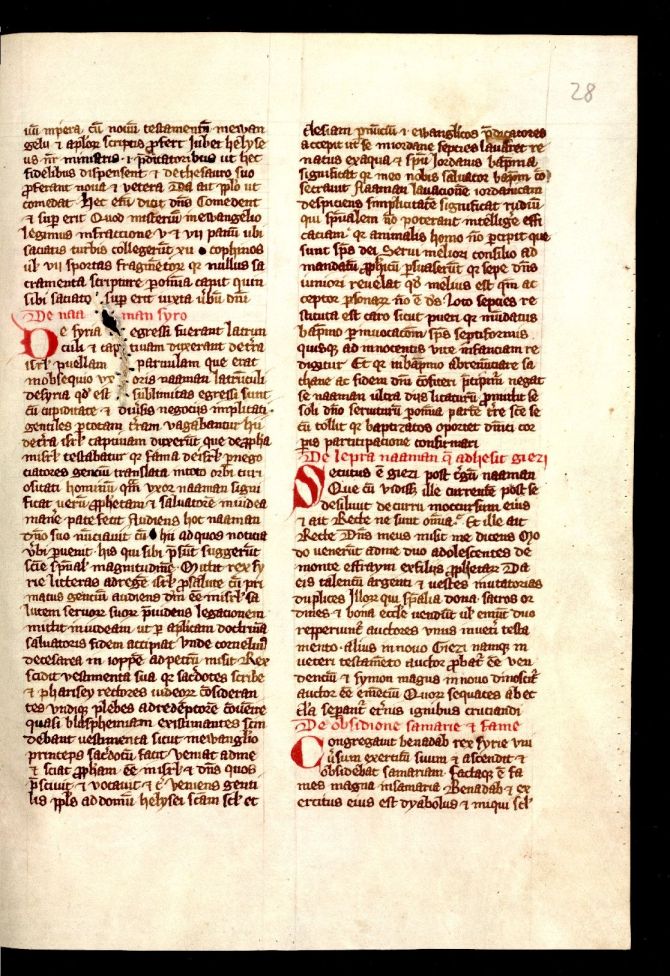 28
gelii & aplor scriptis profert Jubet helyse
fidelibus dispensent & de thesauro suo
proferant noua & vetera Da ait plo ut
comedat Hec eni dicit dns Comedent
& sup erit Quod misteriu in ewangelio
legimus in fractione v & vii panu ubi
saciatis turbis collegerut xii cophinos
ul vii sportas fragmetor qr nullus sa
cramenta scripture potia capit quin
sibi saciato sup erit iuxta ubu dni
De naa man syro
De syria egressi fuerant latrun
culi & cap tiuam duxerant de tra
isrl puellam paruulam que erat
in obsequio ux oris naaman latruculi
de syria qd est sublimitas egressi sunt
cu cupiditate & diuisis negociis implicati
gentiles p totam tram vagabantur hii
de tra isrl captiuam duxerut que de ppha
in isrl testabatur qr fama de isrl p nego
ciatores genciu translata in toto orbi curi
ositati hominu qm uxor naaman signi
ficat ueru pphetam & saluatore in iudea
mane pate fecit Audiens hoc naaman
dno suo nunciauit
ubi puenit his qui sibi psut suggerut
scie spual magnitudine Mittit rex sy
rie litteras ad rege isrl p salute cu pri
matis genciu audiens dm ee in isrl sa
lutem seruor suor puidens legacionem
mittit in iudeam ut p aplicam doctrina
saluatoris fidem accipiat unde cornelius
de cesarea in ioppe ad petru misit Rex
scidit uestimenta sua qr sacdotes scribe
& pharisey rectores iudeor cosideran
tes undiqr plebes ad redeptore couenire
quasi blasphemam existimantes scin
debant uestimenta sicut in ewanglio
princeps sacdotu facit Veniat ad me
& sciat ppham ee in isrl & dns quos
psciuit & uocauit & c Veniens genti
lis ppls ad domu helysei scam scl et
clesiam primciu & ewanglicos pdicatores
accepit ut se in iordane sepcies lauaret re
natus ex aqua & spu Iordanis bapma
significat qr meo nobis saluator bapm co
secrauit Naaman lauacione iordanicam
despiciens simplicitate significat rudiu
qui spualem no poterant intellige effi
caciam qr animalis homo no pcipit que
sunt sps dei Serui meliori consilio ad
mandatu pphicu psuaserut qr sepe dns
iuniori reuelat qd melius est qm ac
ceptor psonar no e ds Loto sepcies re
stituta est caro sicut pueri qr mudatus
bapmo p inuocacom sps septiformis
quisqr ad innocentis uite infanciam re
digitur Et qr in bapmo abrenunciare sa
thane ac fidem dni cofiteri pcipim negat
se naaman ultra diis litaturu promittit se
soli dno seruituru potia parte tre sce se
cu tollit qr baptizatos oportet dnici cor
pis participacione confirmari
De lepra naaman q adhesit giezi
Secutus e giezi post tgu naaman
Que cu uidiss ille currente post se
desiliuit de curru in occursum eius
& ait Recte ne sunt omia Et ille ait
Recte Dns meus misit me dicens Mo
do venerut ad me duo adolescentes de
monte effraym ex filiis pphetar Da
eis talentu argenti & uestes mutatorias
duplices Illor qui spalia dona sacros or
dines & bona eccle vendut ul emut duo
repperiunt auctores unus in ueteri testa
mento alius in nouo Giezi namqr in
ueteri testameto auctor probat ee ven
denciu & symon magus in nouo dinoscit
auctor ee emenciu Quor sequaces ab ec
cla separit eternis cruciandi
De obsidione samarie & fame
Congregauit benadab rex syrie vni
uersum exercitu suum & ascendit &
obsidebat samariam Factaqr e fa
mes magna in samaria Benadab & ex
ercitus eius est dyabolus & iniqui scl